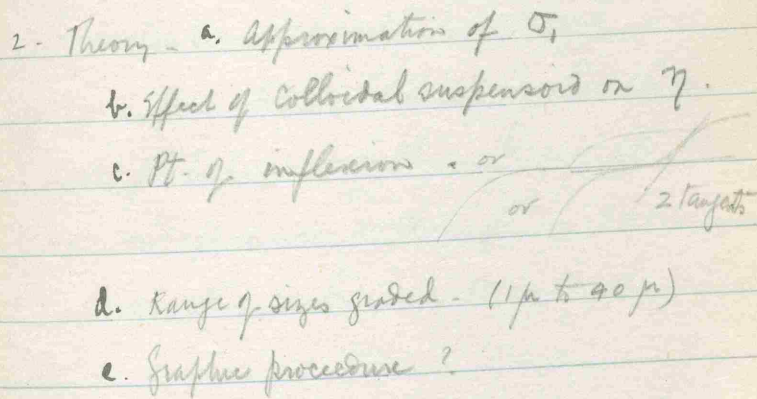 2 - Theory - a. Approximation of σ₁
b. Effect of Colloidal suspensoid on η.
c. Pt. of inflexion - or
or 2 tangents
d. Range of sizes graded - (1μ to 40 μ)
e. Graphic proceedure ?